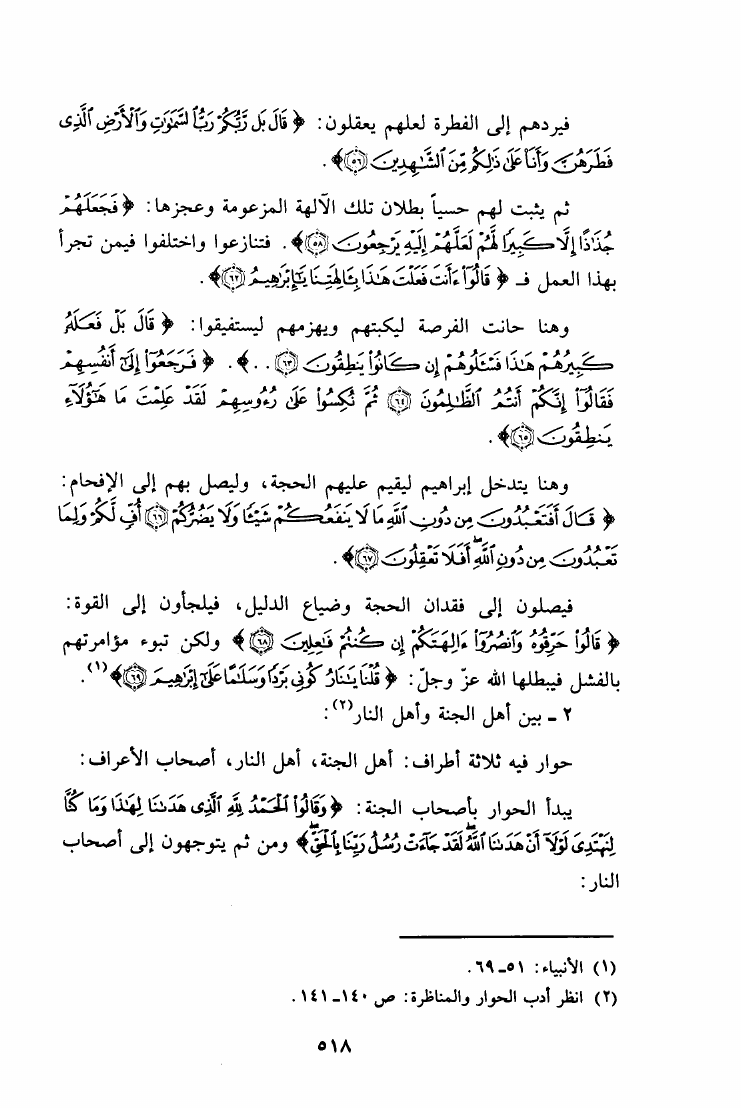 فيردهم إلى الفطرة لعلهم يعقلون: ﴿ قَالَ بَل رَّبُّكُمْ رَبُّ السَّمَٰوَٰتِ وَالْأَرْضِ الَّذِى
فَطَرَهُنَّ وَأَنَا۠ عَلَىٰ ذَٰلِكُم مِّنَ الشَّٰهِدِينَ ٥٦﴾.
ثم يثبت لهم حسياً بطلان تلك الآلهة المزعومة وعجزها: ﴿ فَجَعَلَهُمْ
جُذَٰذًا إِلَّا كَبِيرًا لَّهُمْ لَعَلَّهُمْ إِلَيْهِ يَرْجِعُونَ ٥٨﴾. فتنازعوا واختلفوا فيمن تجرأ
بهذا العمل فـ ﴿ قَالُوٓا۟ ءَأَنتَ فَعَلْتَ هَٰذَا بِـَٔالِهَتِنَا يَٰٓإِبْرَٰهِيمُ ٦٢﴾.
وهنا حانت الفرصة ليكبتهم ويهزمهم ليستفيقوا: ﴿ قَالَ بَلْ فَعَلَهُۥ
كَبِيرُهُمْ هَٰذَا فَسْـَٔلُوهُمْ إِن كَانُوا۟ يَنطِقُونَ ٦٣ ..﴾. ﴿ فَرَجَعُوٓا۟ إِلَىٰٓ أَنفُسِهِمْ
فَقَالُوٓا۟ إِنَّكُمْ أَنتُمُ الظَّٰلِمُونَ ٦٤ ثُمَّ نُكِسُوا۟ عَلَىٰ رُءُوسِهِمْ لَقَدْ عَلِمْتَ مَا هَٰٓؤُلَآءِ
يَنطِقُونَ ٦٥﴾.
وهنا يتدخل إبراهيم ليقيم عليهم الحجة، وليصل بهم إلى الإفحام:
﴿ قَالَ أَفَتَعْبُدُونَ مِن دُونِ اللَّهِ مَا لَا يَنفَعُكُمْ شَيْـًٔا وَلَا يَضُرُّكُمْ ٦٦ أُفٍّ لَّكُمْ وَلِمَا
تَعْبُدُونَ مِن دُونِ اللَّهِ أَفَلَا تَعْقِلُونَ ٦٧﴾.
فيصلون إلى فقدان الحجة وضياع الدليل، فيلجأون إلى القوة:
﴿ قَالُوا۟ حَرِّقُوهُ وَانصُرُوٓا۟ ءَالِهَتَكُمْ إِن كُنتُمْ فَٰعِلِينَ ٦٨ ﴾ ولكن تبوء مؤامرتهم
بالفشل فيبطلها الله عزّ وجلّ: ﴿ قُلْنَا يَٰنَارُ كُونِى بَرْدًا وَسَلَٰمًا عَلَىٰٓ إِبْرَٰهِيمَ ٦٩﴾(١).
٢ ـ بين أهل الجنة وأهل النار(٢):
حوار فيه ثلاثة أطراف: أهل الجنة، أهل النار، أصحاب الأعراف:
يبدأ الحوار بأصحاب الجنة: ﴿ وَقَالُوا۟ الْحَمْدُ لِلَّهِ الَّذِى هَدَىٰنَا لِهَٰذَا وَمَا كُنَّا
لِنَهْتَدِىَ لَوْلَآ أَنْ هَدَىٰنَا اللَّهُ لَقَدْ جَآءَتْ رُسُلُ رَبِّنَا بِالْحَقِّ ﴾ ومن ثم يتوجهون إلى أصحاب
النار:
(١) الأنبياء: ٥١ـ٦٩.
(٢) انظر أدب الحوار والمناظرة: ص ١٤٠ـ١٤١.
٥١٨